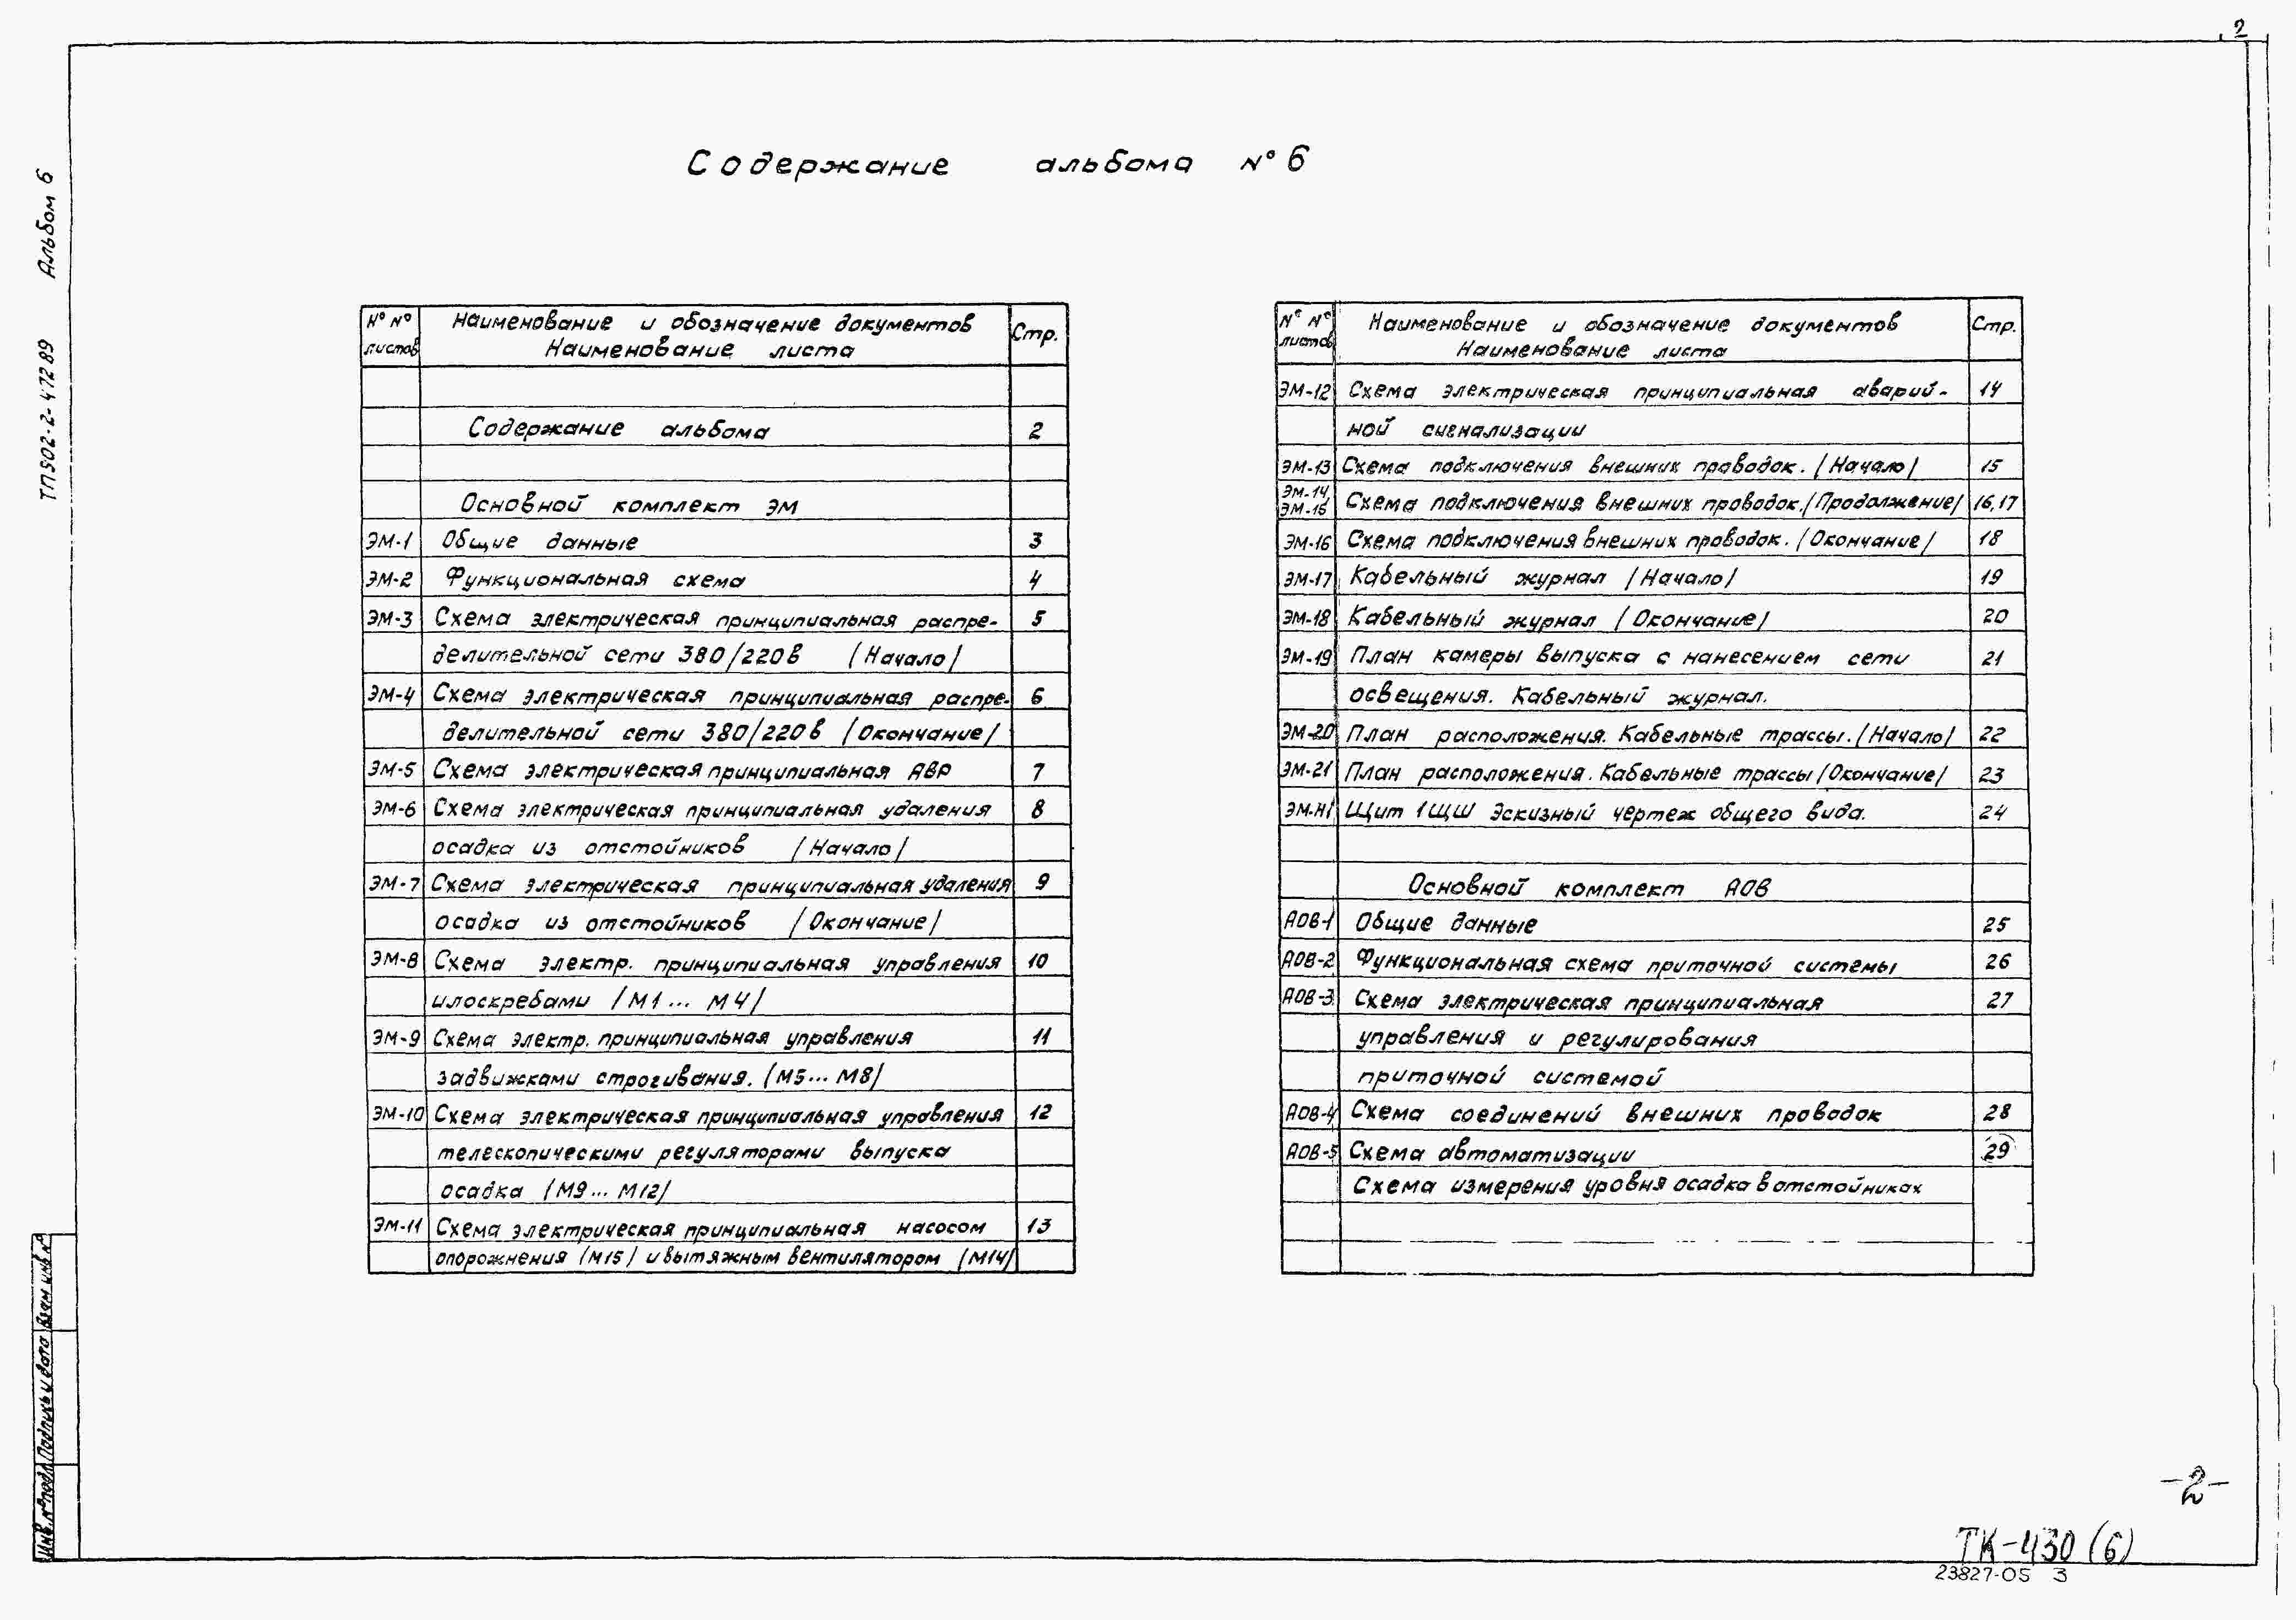 2
Содержание альбома № 6
Альбом 6
ТП 902-2-472 89
№ № листов Наименование и обозначение документов Стр.
Наименование листа
Содержание альбома 2
Основной комплект ЭМ
ЭМ-1 Общие данные 3
ЭМ-2 Функциональная схема 4
ЭМ-3 Схема электрическая принципиальная распре- 5
делительной сети 380/220в /Начало/
ЭМ-4 Схема электрическая принципиальная распре- 6
делительной сети 380/220в /Окончание/
ЭМ-5 Схема электрическая принципиальная АВР 7
ЭМ-6 Схема электрическая принципиальная удаления 8
осадка из отстойников /Начало/
ЭМ-7 Схема электрическая принципиальная удаления 9
осадка из отстойников /Окончание/
ЭМ-8 Схема электр. принципиальная управления 10
илоскребами /М1... М4/
ЭМ-9 Схема электр. принципиальная управления 11
задвижками строгивания. /М5... М8/
ЭМ-10 Схема электрическая принципиальная управления 12
телескопическими регуляторами выпуска
осадка /М9... М12/
ЭМ-11 Схема электрическая принципиальная насосом 13
опорожнения /М15/ и вытяжным вентилятором /М14/
№ № листов Наименование и обозначение документов Стр.
Наименование листа
ЭМ-12 Схема электрическая принципиальная аварий- 14
ной сигнализации
ЭМ-13 Схема подключения внешних проводок. /Начало/ 15
ЭМ-14 ЭМ-15 Схема подключения внешних проводок./Продолжение/ 16,17
ЭМ-16 Схема подключения внешних проводок. /Окончание/ 18
ЭМ-17 Кабельный журнал /Начало/ 19
ЭМ-18 Кабельный журнал /Окончание/ 20
ЭМ-19 План камеры выпуска с нанесением сети 21
освещения. Кабельный журнал.
ЭМ-20 План расположения. Кабельные трассы. /Начало/ 22
ЭМ-21 План расположения. Кабельные трассы /Окончание/ 23
ЭМ-Н1 Щит 1ЩШ Эскизный чертеж общего вида. 24
Основной комплект АОВ
АОВ-1 Общие данные 25
АОВ-2 Функциональная схема приточной системы 26
АОВ-3 Схема электрическая принципиальная 27
управления и регулирования
приточной системой
АОВ-4 Схема соединений внешних проводок 28
АОВ-5 Схема автоматизации 29
Схема измерения уровня осадка в отстойниках
Взам инв №
Подпись и дата
Инв. № подл
-2-
ТК-430 (6)
23827-05 3